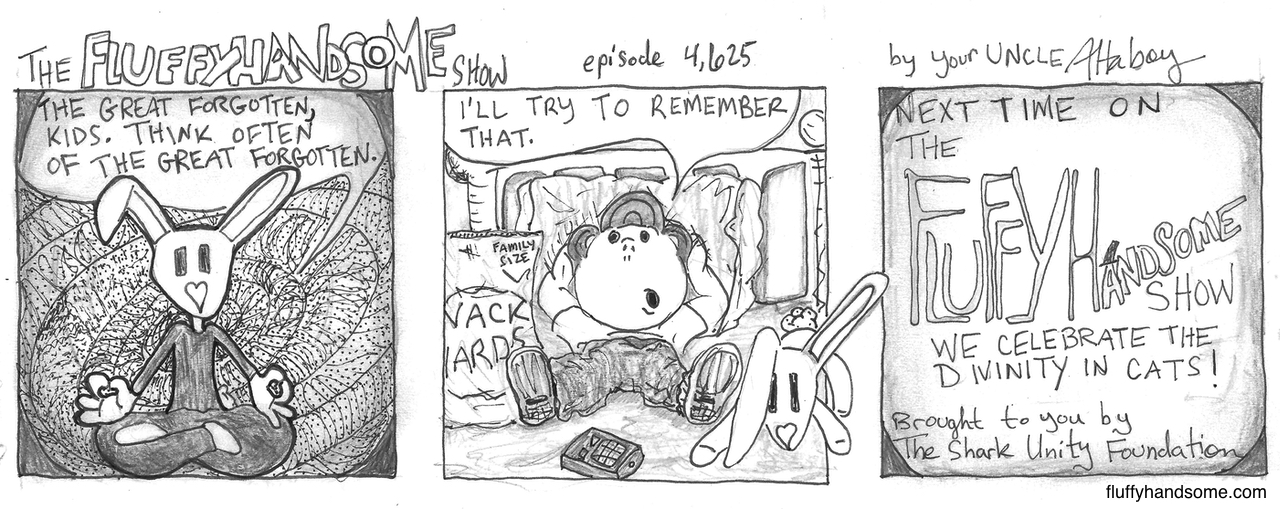 THE FLUFFYHANDSOME SHOW
episode 4,625
by your UNCLE Attaboy
THE GREAT FORGOTTEN,
KIDS. THINK OFTEN
OF THE GREAT FORGOTTEN.
I'LL TRY TO REMEMBER
THAT.
FAMILY
SIZE
NACK
IARDS
NEXT TIME ON
THE
FLUFFYHANDSOME
SHOW
WE CELEBRATE THE
DIVINITY IN CATS!
Brought to you by
The Shark Unity Foundation
fluffyhandsome.com